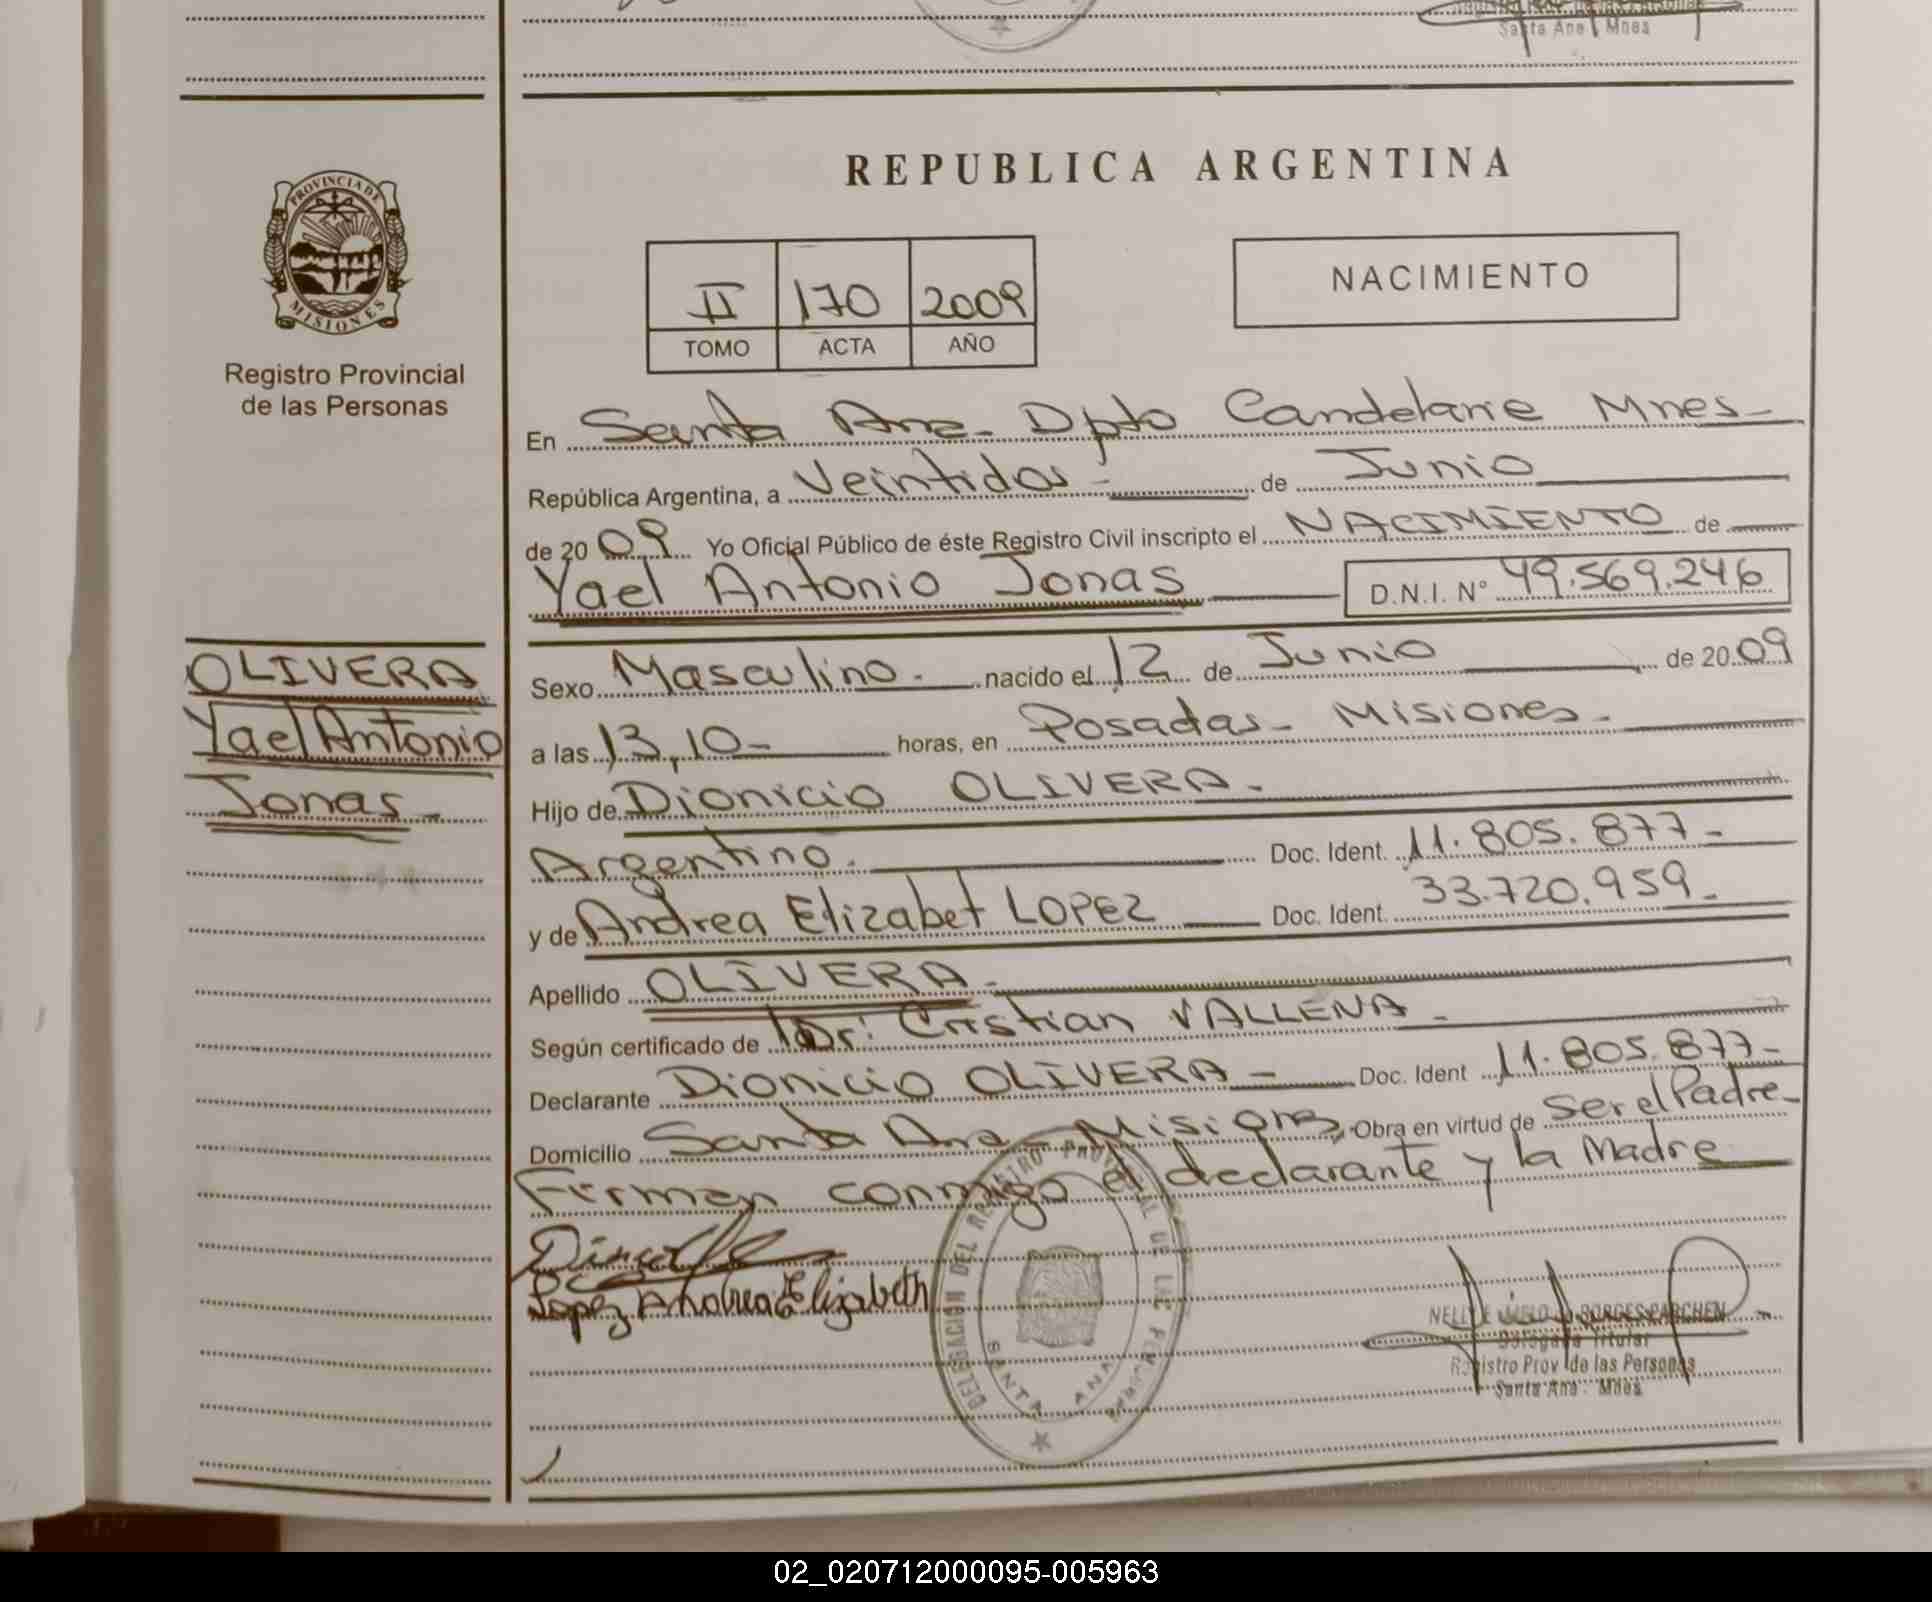 Santa Ana Mnes
REPUBLICA ARGENTINA
PROVINCIA DE
MISIONES
Registro Provincial
de las Personas
II 170 2009
TOMO ACTA AÑO
NACIMIENTO
En Santa Ana - Dpto Candelaria Mnes -
República Argentina, a Veintidos - de Junio
de 2009 Yo Oficial Público de éste Registro Civil inscripto el NACIMIENTO de
Yael Antonio Jonas D.N.I. N° 49.569.246
OLIVERA
Yael Antonio
Jonas -
Sexo Masculino. nacido el 12 de Junio de 2009
a las 13,10 - horas, en Posadas - Misiones -
Hijo de Dionicio OLIVERA -
Argentino. Doc. Ident. 11.805.877 -
y de Andrea Elizabet LOPEZ Doc. Ident. 33.720.959 -
Apellido OLIVERA -
Según certificado de Dr: Cristian VALLENA -
Declarante Dionicio OLIVERA - Doc. Ident 11.805.877 -
Domicilio Santa Ana - Misiones, Obra en virtud de Ser el Padre -
Firman conmigo el declarante y la Madre
Lopez Andrea Elizabeth
DELEGACION DEL REGISTRO PROVINCIAL DE LAS PERSONAS
SANTA ANA
NELLY E BORGES PARCHEN
Delegada Titular
Registro Prov de las Personas
Santa Ana - Mnes
02_020712000095-005963